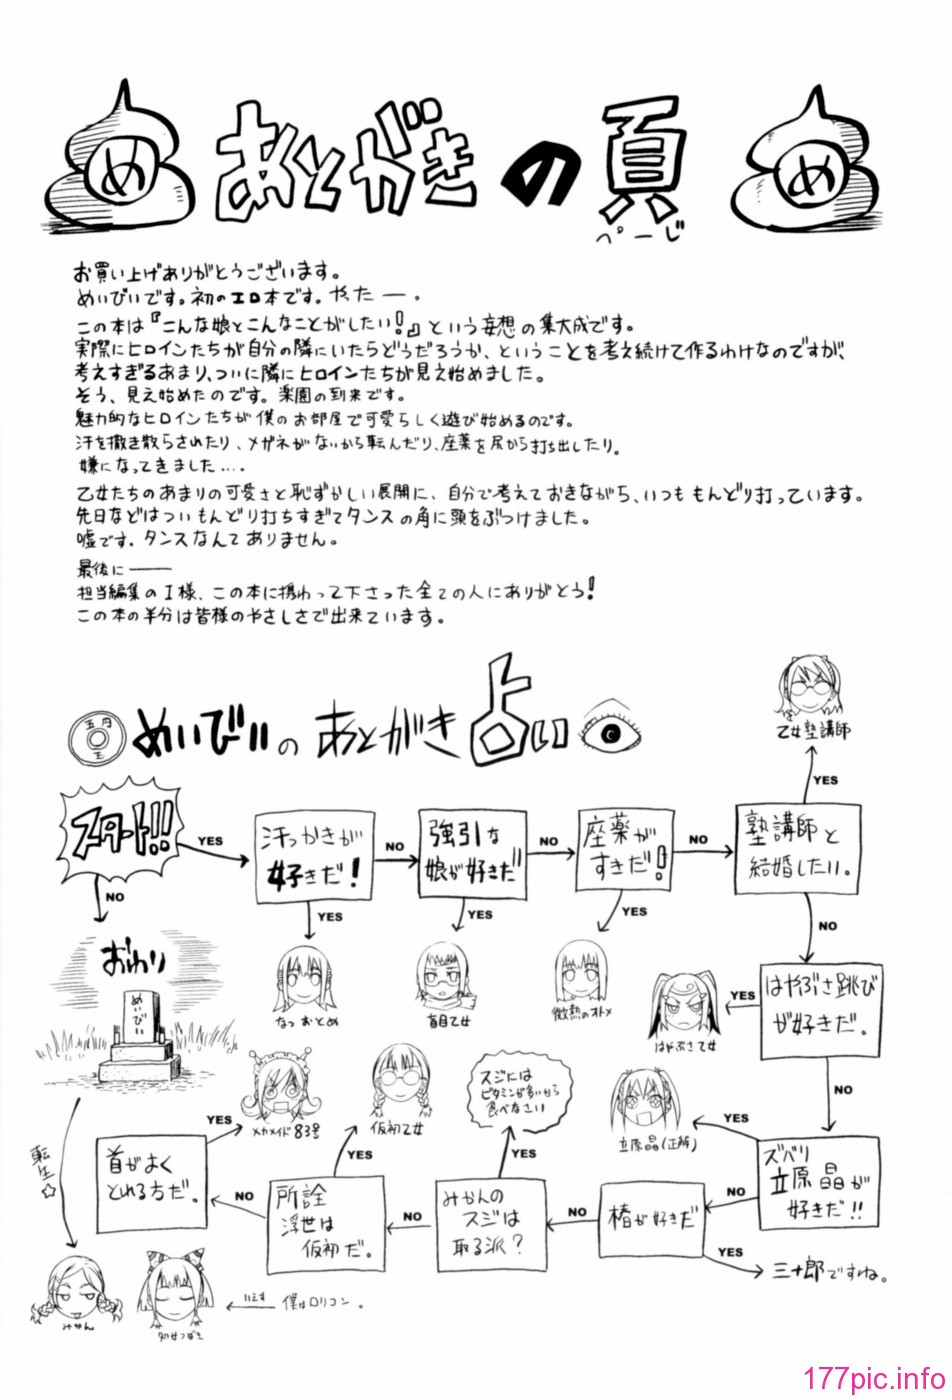 め
あとがきの頁
ぺーじ
め
お買い上げありがとうございます。
めいびいです。初のエロ本です。やったー。
この本は『こんな娘とこんなことがしたい!』という妄想の集大成です。
実際にヒロインたちが自分の隣にいたらどうだろうか、ということを考え続けて作るわけなのですが、
考えすぎるあまり、ついに隣にヒロインたちが見え始めました。
そう、見え始めたのです。楽園の到来です。
魅力的なヒロインたちが僕のお部屋で可愛らしく遊び始めるのです。
汗を撒き散らされたり、メガネがないから転んだり、座薬を尻から打ち出したり。
嫌になってきました….
乙女たちのあまりの可愛さと恥ずかしい展開に、自分で考えておきながら、いつももんどり打っています。
先日などはついもんどり打ちすぎてタンスの角に頭をぶつけました。
嘘です。タンスなんてありません。
最後に――
担当編集のI様、この本に携わって下さった全ての人にありがとう!
この本の半分は皆様のやさしさで出来ています。
五円
玉
めいびいのあとがき占い
乙女塾講師
YES
スタート!!
YES
汗っかきが
好きだ!
NO
強引な
娘が好きだ
NO
座薬が
すきだ!
NO
塾講師と
結婚したい。
NO
YES
YES
YES
NO
おわり
めいびい
なつおとめ
盲目乙女
微熱のオトメ
はやぶさ乙女
YES
はやぶさ跳び
が好きだ。
NO
メカメイド83号
仮初乙女
スジには
ビタミンが多いから
食べなさい
立原晶(正解)
YES
ズバリ
立原晶が
好きだ!!
NO
椿が好きだ
YES
三十郎ですね。
NO
みかんの
スジは
取る派?
YES
NO
所詮
浮世は
仮初だ。
YES
NO
首がよく
とれる方だ。
YES
転生☆
みかん
幼女つばき
いえす
僕はロリコン。
177pic.info